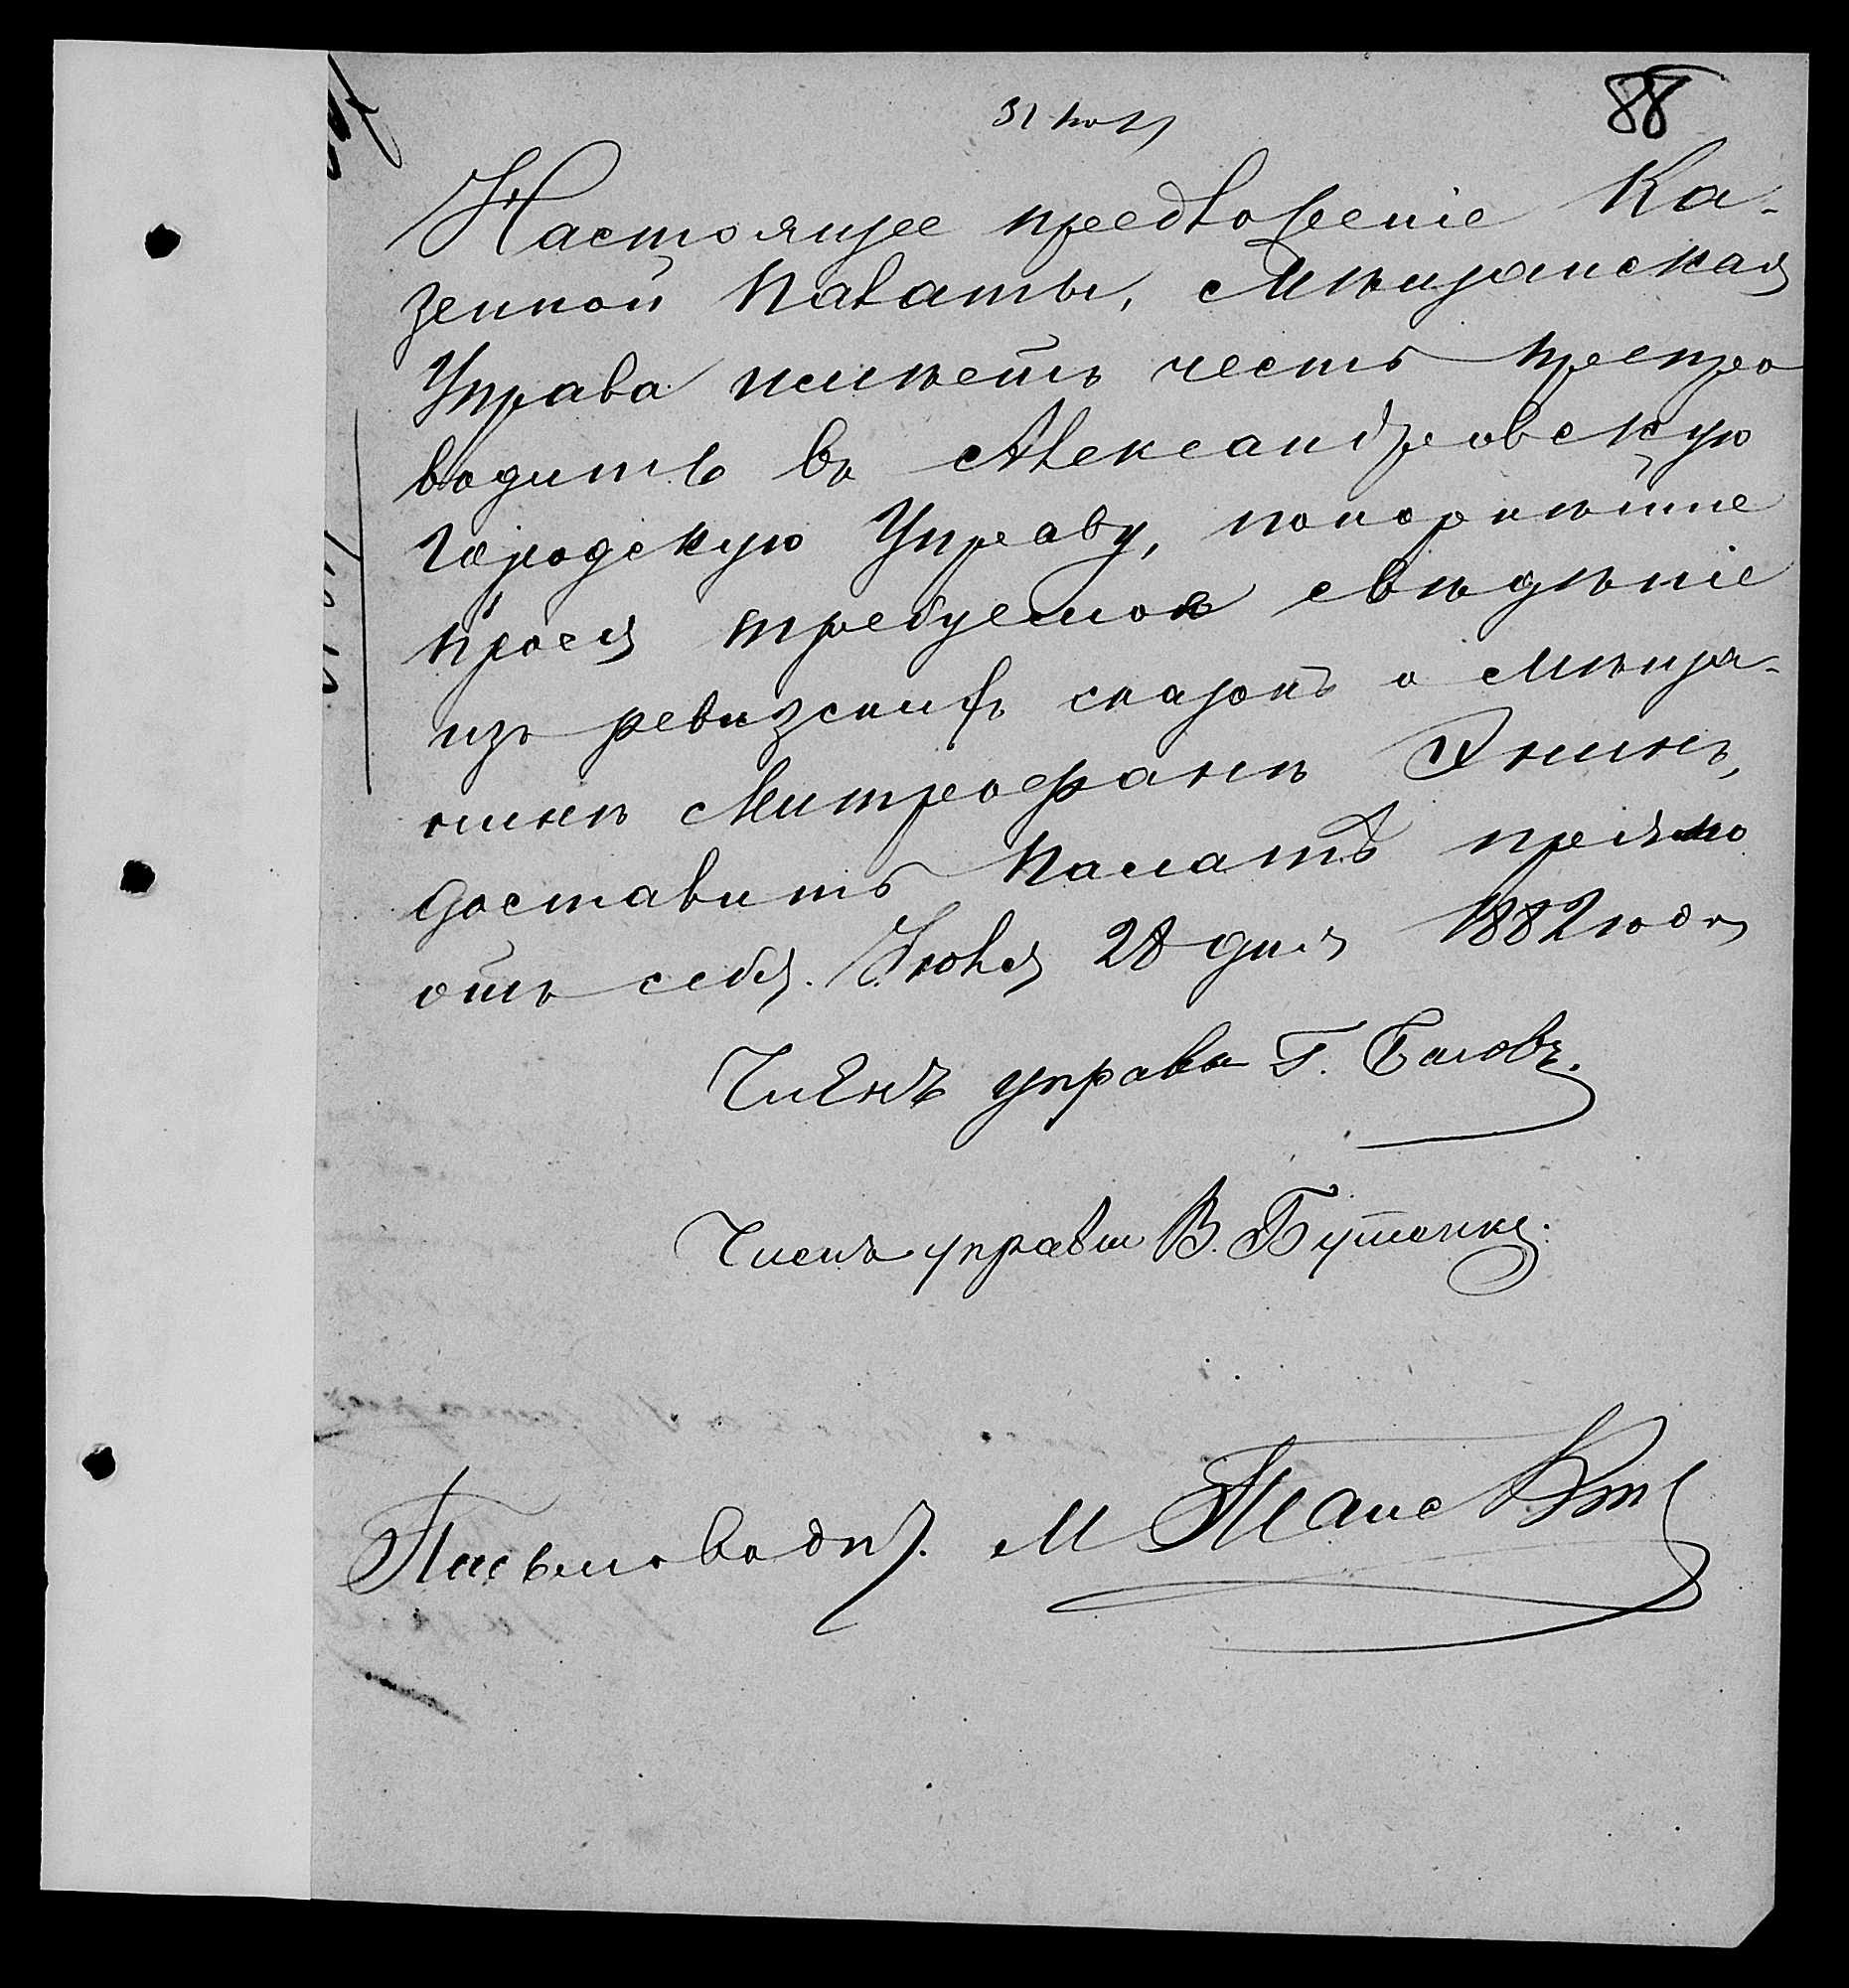 88
31 июл
Настоящее предложеніе Ка-
зенной Палаты, Мѣщанская
Управа имѣетъ честь препро
водить въ Александровскую
Городскую Управу, покорнѣйше
прося требуемое свѣдѣніе
изъ ревизскихъ сказокъ о Мѣща-
нинѣ Митрофанѣ
доставить Палатѣ прямо
отъ себя. Іюля 28 дня 1882 года
Членъ управы Г.
Членъ управы В. Бутенко.
Письмоводит. М